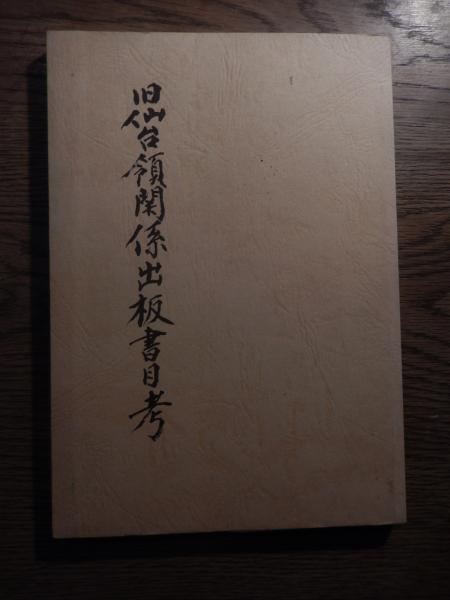 旧仙台領関係出板書目考